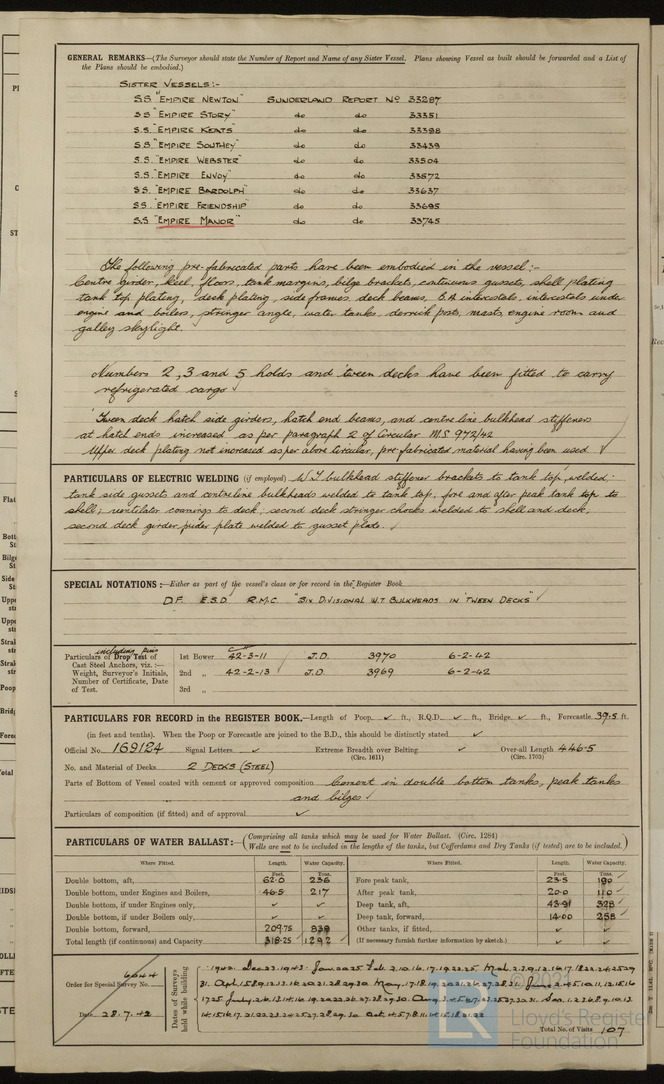 GENERAL REMARKS—(The Surveyor should state the Number of Report and Name of any Sister Vessel. Plans showing Vessel as built should be forwarded and a List of
the Plans should be embodied.)
SISTER VESSELS:-
S.S "EMPIRE NEWTON" SUNDERLAND REPORT No 33287
S.S "EMPIRE STORY" do do 33351
S.S. "EMPIRE KEATS" do do 33398
S.S. "EMPIRE SOUTHEY" do do 33439
S.S. "EMPIRE WEBSTER" do do 33504
S.S. "EMPIRE ENVOY" do do 33572
S.S. "EMPIRE BARDOLPH" do do 33637
S.S. "EMPIRE FRIENDSHIP" do do 33695
S.S "EMPIRE MANOR" do do 33745
The following pre-fabricated parts have been embodied in the vessel:-
Centre girder, keel, floors, tank margins, bilge brackets, continuous gussets, shell plating
tank top plating, deck plating, side frames, deck beams, intercostals, intercostals under
engine and boilers, stringer angle, water tanks derrick posts, masts, engine room and
galley skylight.
Numbers 2, 3 and 5 holds and 'tween decks have been fitted to carry
refrigerated cargo ✓
'Tween deck hatch side girders, hatch end beams, and centre line bulkhead stiffeners
at hatch ends increased as per paragraph 2 of Circular M.S 972/42
Upper deck plating not increased as per above Circular, pre-fabricated material having been used ✓
PARTICULARS OF ELECTRIC WELDING (if employed) W.T. bulkhead stiffener brackets to tank top, welded;
tank side gussets and centreline bulkheads welded to tank top, fore and after peak tank top to
shell; ventilator coamings to deck; second deck stringer chocks welded to shell and deck;
second deck girder plate welded to gusset plate. ✓
SPECIAL NOTATIONS:—Either as part of the vessel's class or for record in the Register Book
D.F. E.S.D R.M.C "SIX DIVISIONAL W.T BULKHEADS IN 'TWEEN DECKS" ✓
including pins
Particulars of Drop Test of
Cast Steel Anchors, viz.:—
Weight, Surveyor's Initials,
Number of Certificate, Date
of Test.
1st Bower 42-3-11 J.D. 3970 6-2-42
2nd „ 42-2-13 J.D. 3969 6-2-42
3rd „
PARTICULARS FOR RECORD in the REGISTER BOOK.—Length of Poop ✓ ft., R.Q.D. ✓ ft., Bridge ✓ ft., Forecastle 39.5 ft.
(in feet and tenths). When the Poop or Forecastle are joined to the B.D., this should be distinctly stated ✓
Official No. 169124 Signal Letters ✓ Extreme Breadth over Belting ✓ Over-all Length 446.5
(Circ. 1611) (Circ. 1703)
No. and Material of Decks 2 DECKS (STEEL)
Parts of Bottom of Vessel coated with cement or approved composition Cement in double bottom tanks, peak tanks
and bilges ✓
Particulars of composition (if fitted) and of approval ✓
PARTICULARS OF WATER BALLAST:—(Comprising all tanks which may be used for Water Ballast. (Circ. 1284)
Wells are not to be included in the lengths of the tanks, but Cofferdams and Dry Tanks (if tested) are to be included.)
Where Fitted. Length. Water Capacity. Where Fitted. Length. Water Capacity.
Feet. Tons. Feet. Tons.
Double bottom, aft, 62.0 236 Fore peak tank, 23.5 190 ✓
Double bottom, under Engines and Boilers, 46.5 217 After peak tank, 20.0 110 ✓
Double bottom, if under Engines only, ✓ ✓ Deep tank, aft, 43.91 328 ✓
Double bottom, if under Boilers only, ✓ ✓ Deep tank, forward, 14.00 258 ✓
Double bottom, forward, 209.75 839 Other tanks, if fitted, ✓ ✓
Total length (if continuous) and Capacity 318.25 1292 (If necessary furnish further information by sketch.) ✓ ✓
Order for Special Survey No. 6644
Date 28.7.42
Dates of Surveys held while building
Total No. of Visits 107
© 2021
LR
Lloyd's Register
Foundation